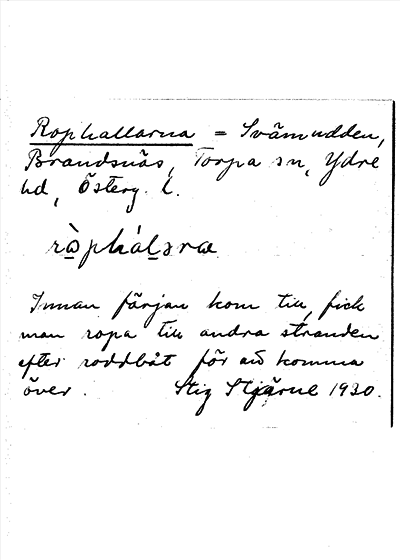 Rophallarna = Svämudden,
Brandsnäs, Torpa sn, Ydre
hd, Österg. l.
rὼphálәra
Innan färjan kom till, fick
man ropa till andra stranden
efter roddbåt för att komma
över. Stig Stjärne 1930.